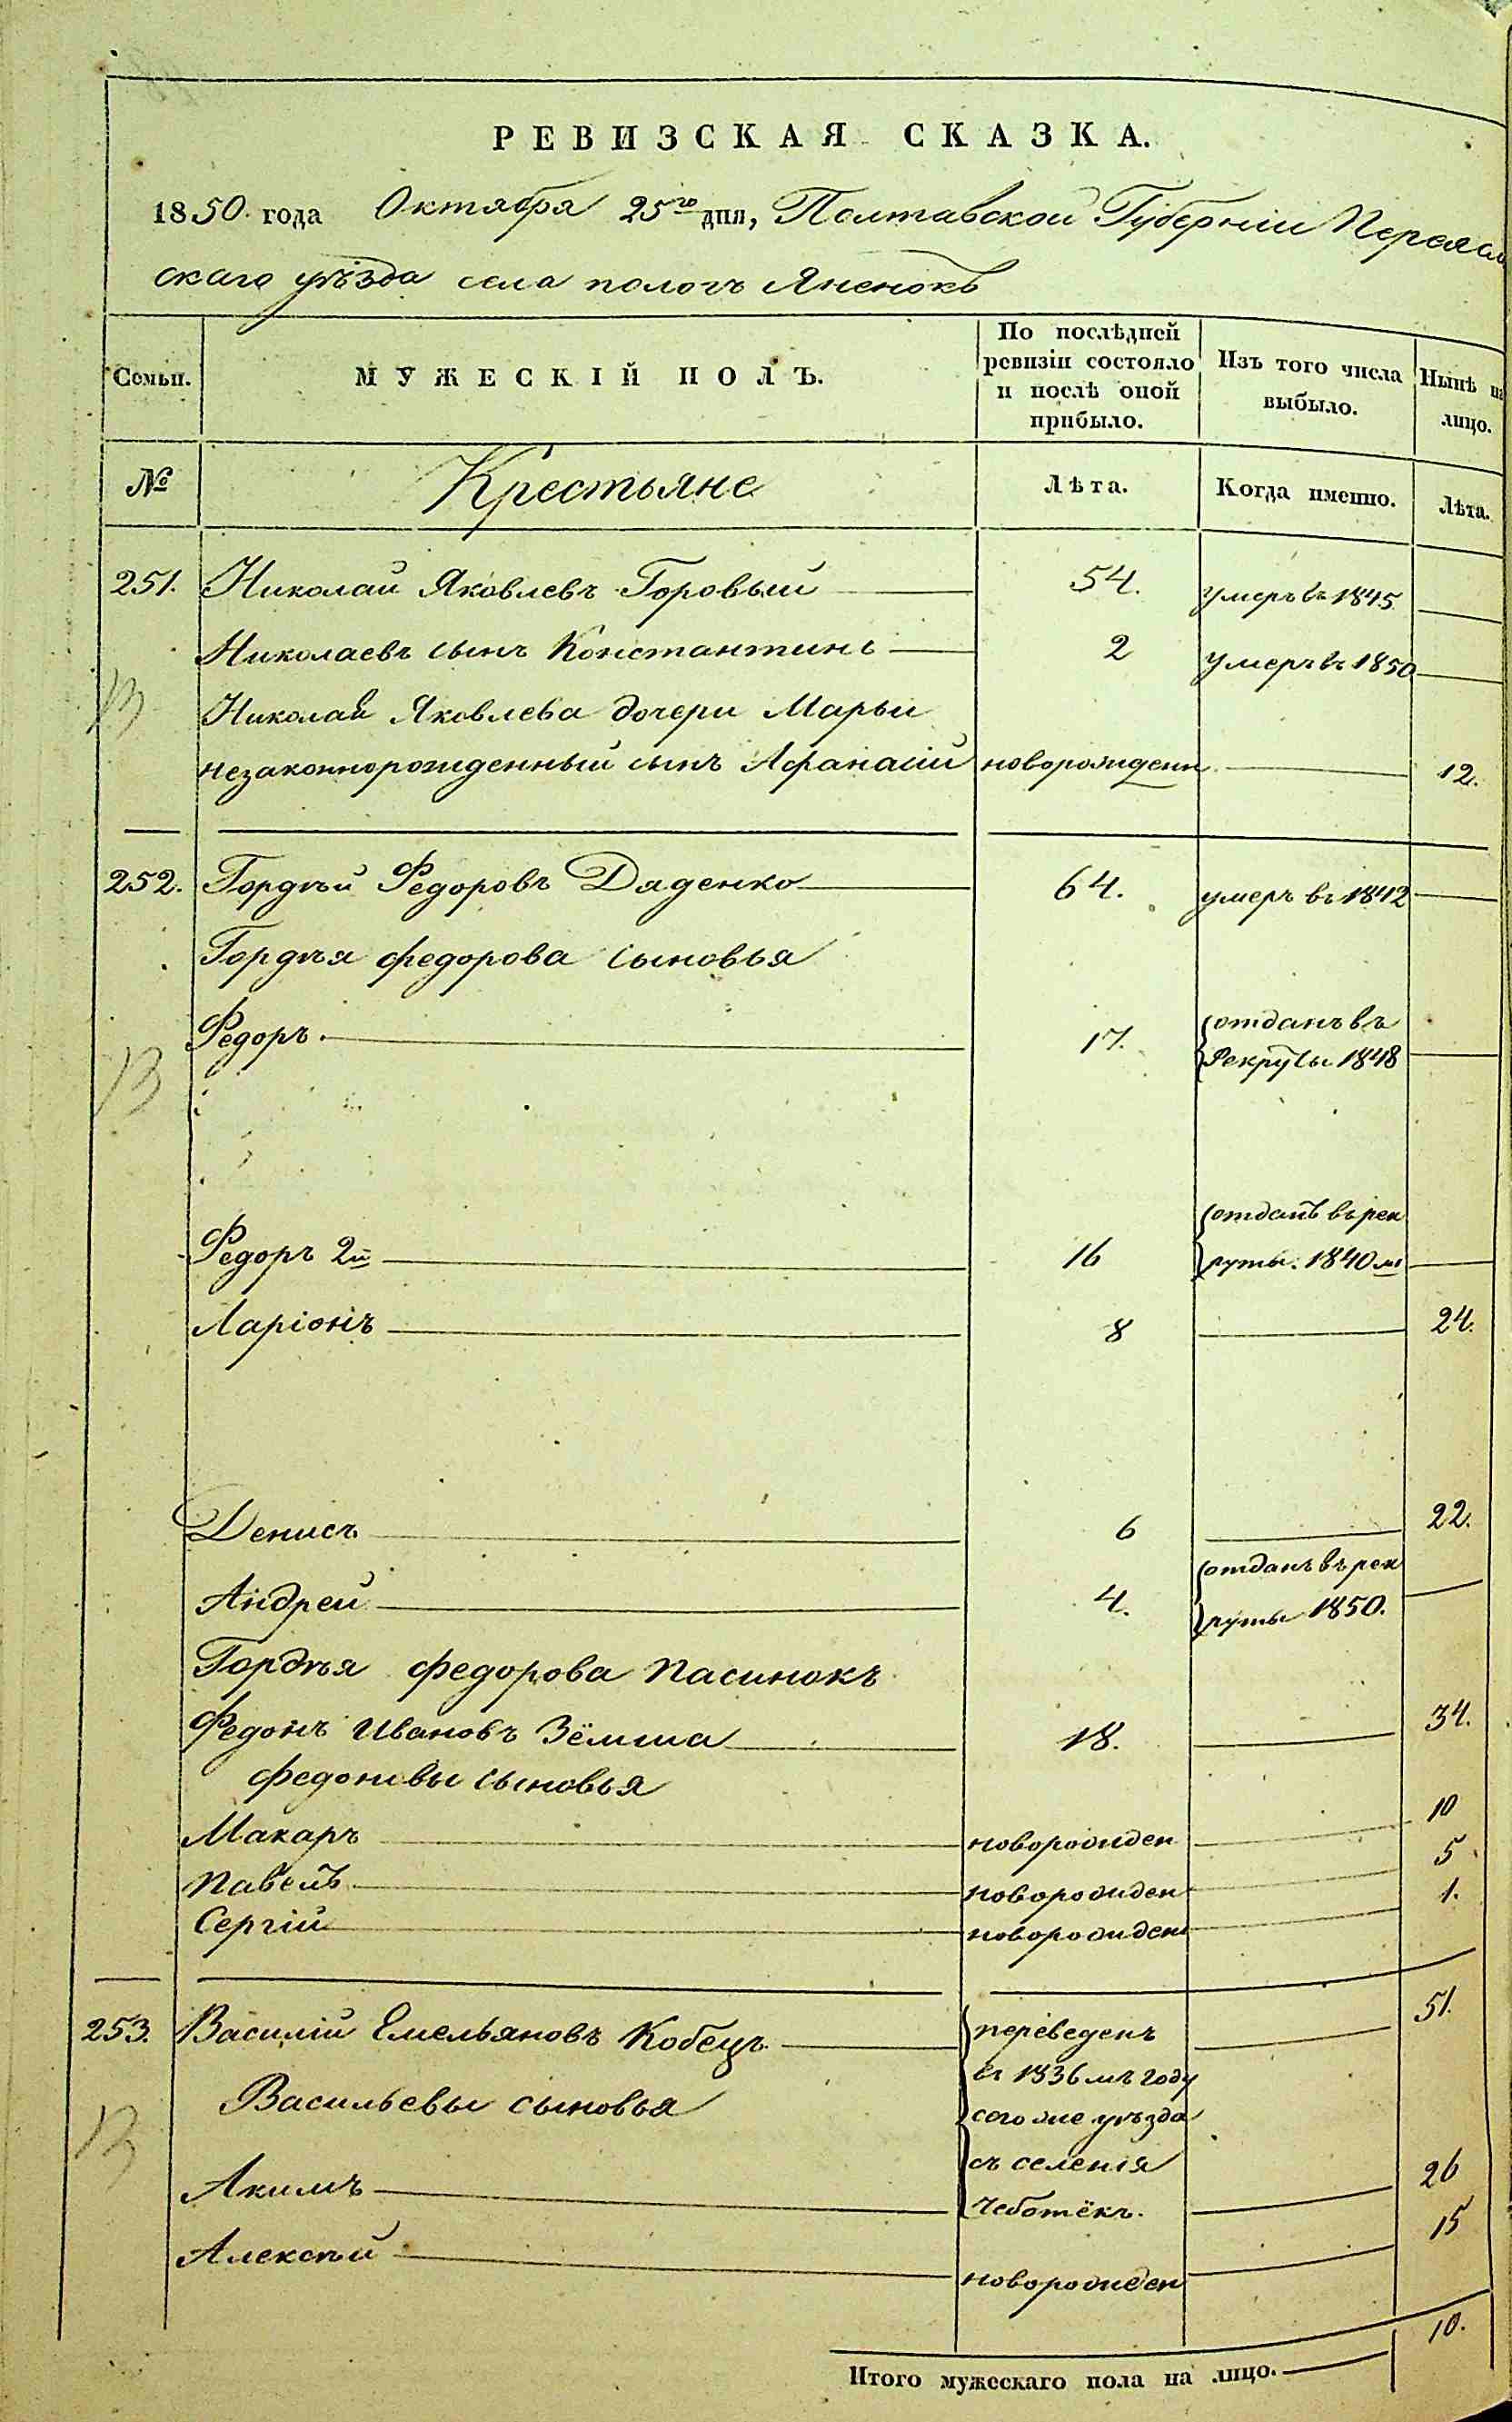 РЕВИЗСКАЯ СКАЗКА.
1850 года Октября 25го дня, Полтавской Губерніи Переясл
скаго уѣзда села пологъ Яненокъ
Семьи. МУЖЕСКІЙ ПОЛЪ. По послѣдней ревизіи состояло и послѣ оной прибыло. Изъ того числа выбыло. Нынѣ на лицо.
№ Крестьяне Лѣта. Когда именно. Лѣта.
251. Николай Яковлевъ Горовый 54. умеръ въ 1845
Николаевъ сынъ Константинъ 2 умеръ въ 1850
Николая Яковлева дочери Марьи
незаконнорожденный сынъ Афанасій новорожденн 12.
252. Гордѣй Федоровъ Дяденко 64. умеръ въ 1842
Гордѣя федорова сыновья
Федоръ 17. отданъ въ
Рекруты 1848
Федоръ 2й 16 отданъ въ рек
руты. 1840 мъ
Ларіонъ 8 24.
Денисъ 6 22.
Андрей 4. отданъ въ рек
руты 1850.
Гордѣя федорова пасинокъ
Федонъ Ивановъ Зёмша 18. 34.
федоновы сыновья
Макаръ новорожден 10
Павелъ новорожден 5
Сергій новорожден 1.
253. Василій Емельяновъ Кобецъ переведенъ 51.
въ 1836 мъ году
Васильевы сыновья сего же уѣзда
съ селенія
Акимъ Чеботёкъ. 26
Алексѣй новорожден 15
Итого мужескаго пола на лицо. 10.